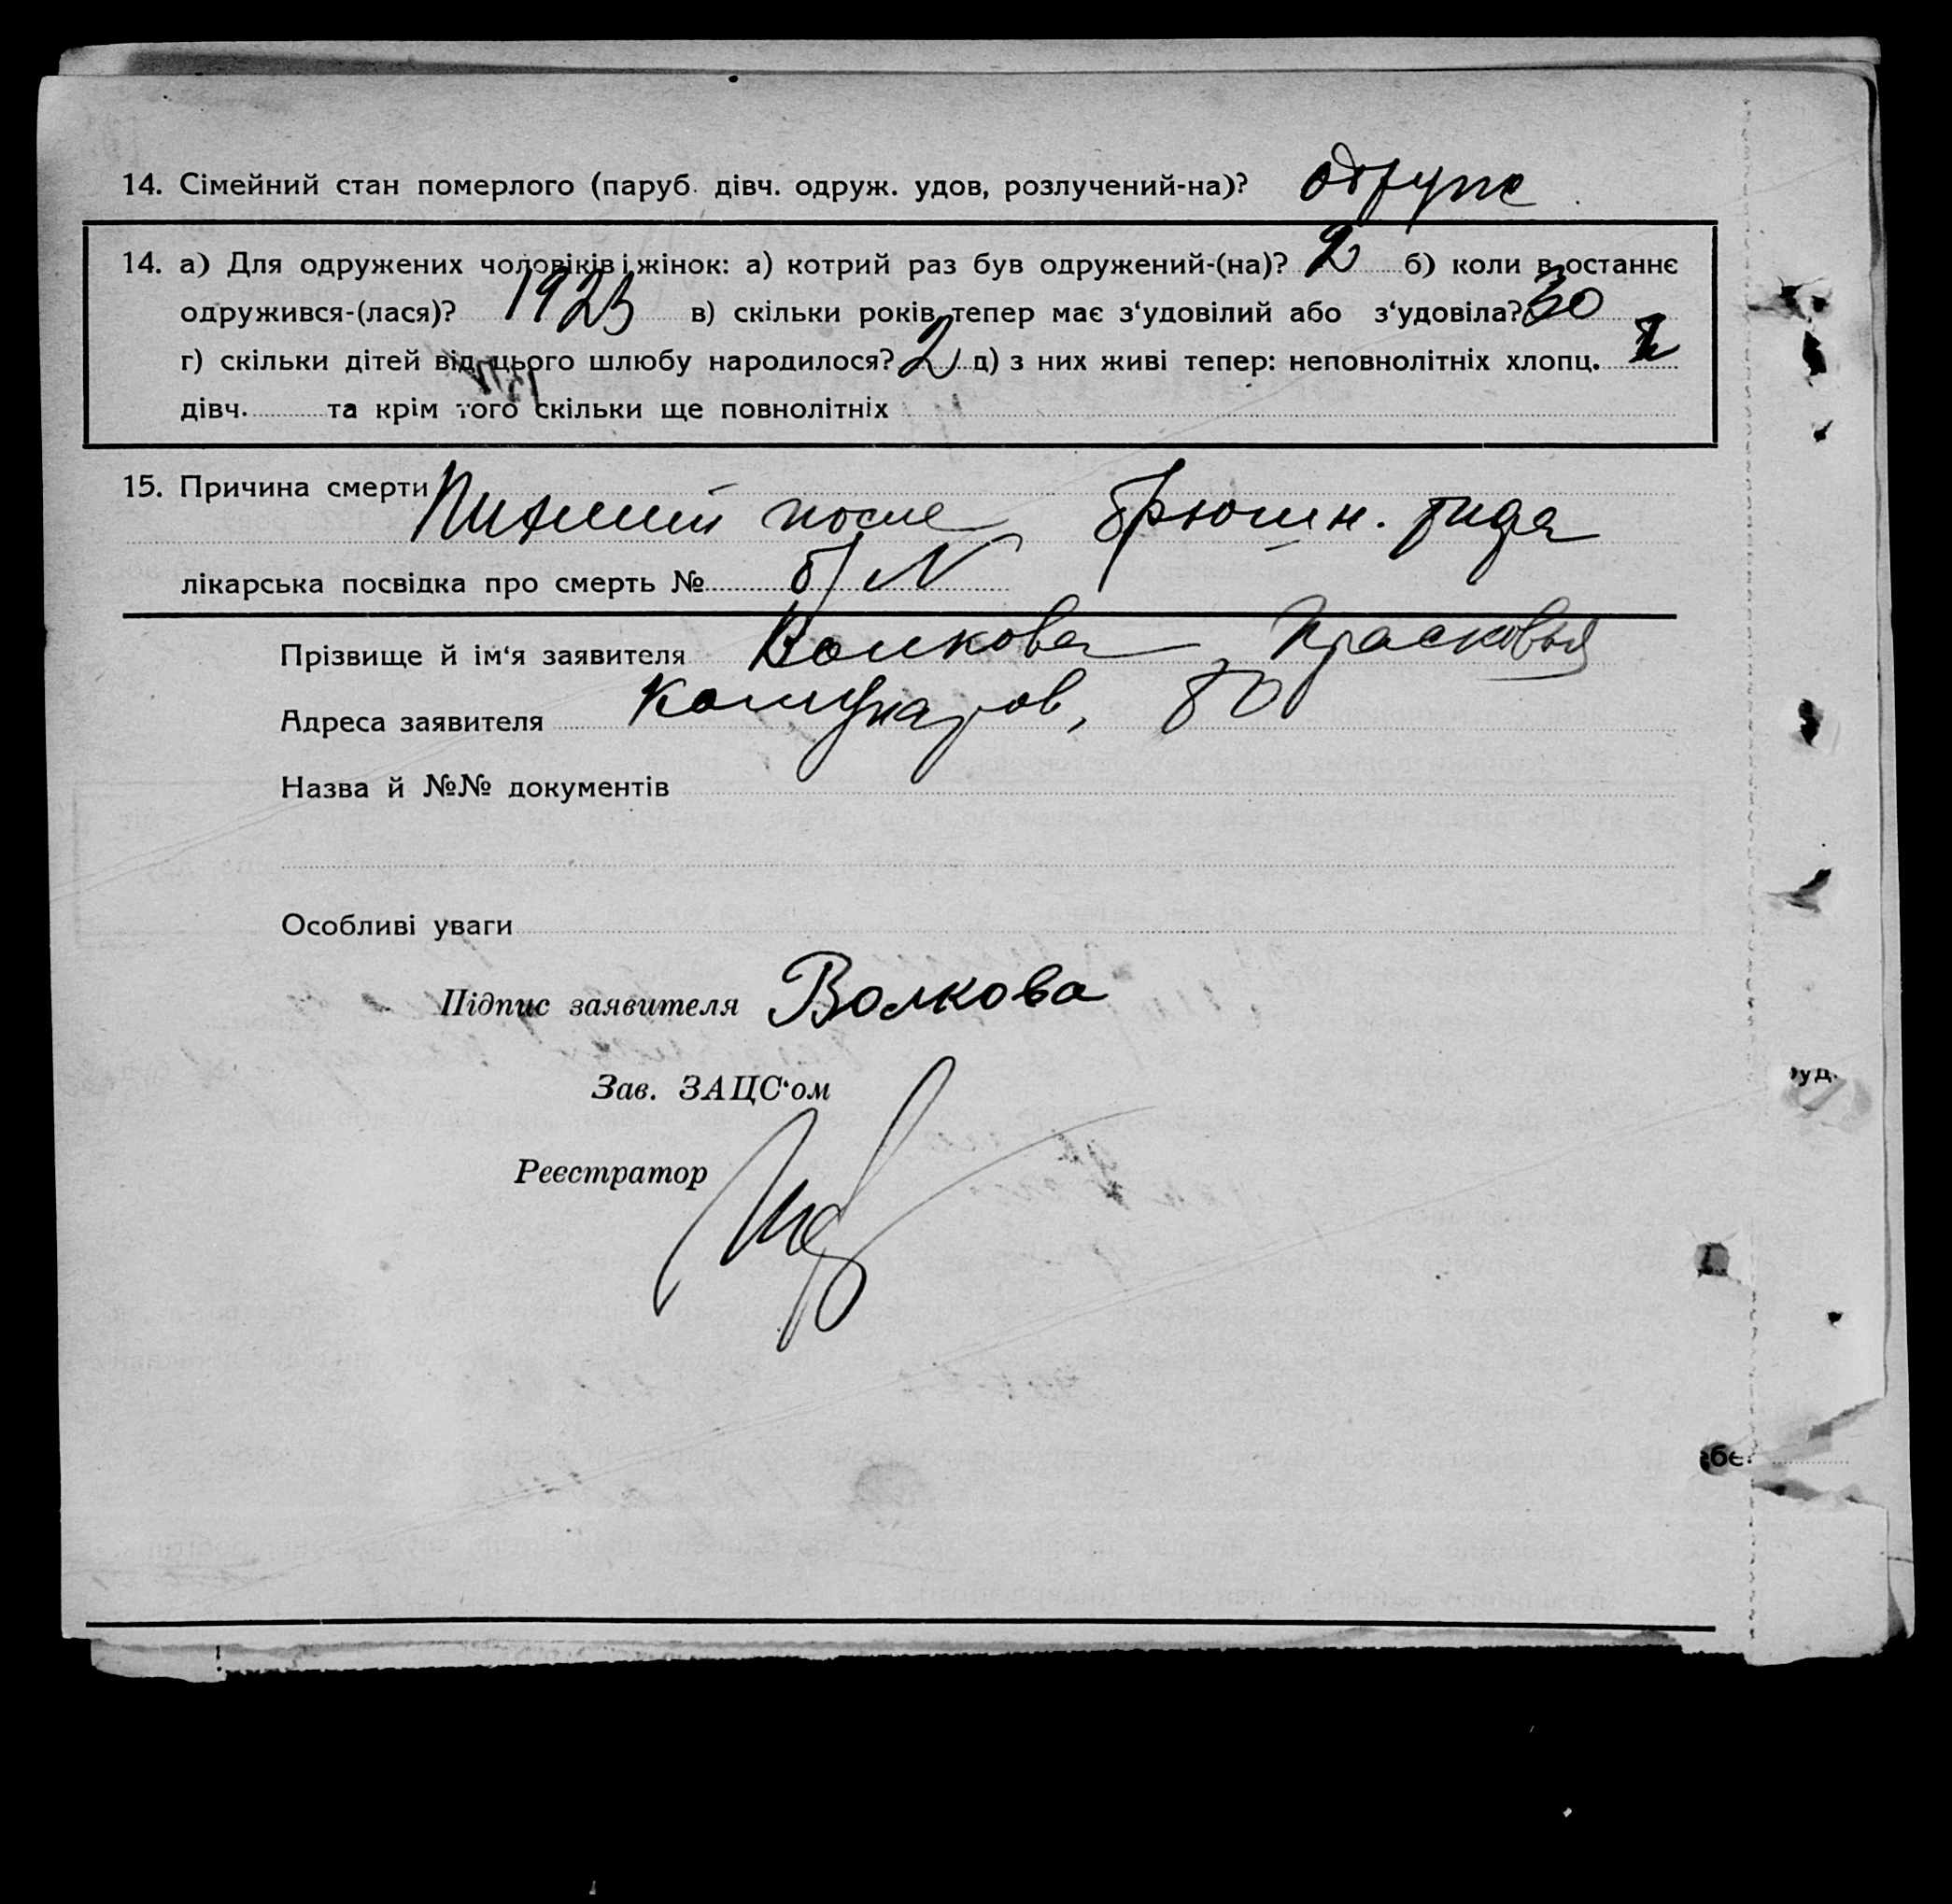 14. Сімейний стан померлого (паруб. дівч. одруж. удов, розлучений-на)? одруж
14. а) Для одружених чоловіків і жінок: а) котрий раз був одружений-(на)? 2 б) коли в останнє
одружився-(лася)? 1923 в) скільки років тепер має з‘удовілий або з‘удовіла? 30
г) скільки дітей від цього шлюбу народилося? 2 д) з них живі тепер: неповнолітніх хлопц.
дівч. та крім того скільки ще повнолітніх
15. Причина смерти после брюшн. тифа
лікарська посвідка про смерть № б/N
Прізвище й ім‘я заявителя Волкова Прасковья
Адреса заявителя Комунаров, 80
Назва й №№ документів
Особливі уваги
Підпис заявителя Волкова
Зав. ЗАЦС‘ом
уд.
Реєстратор
бе